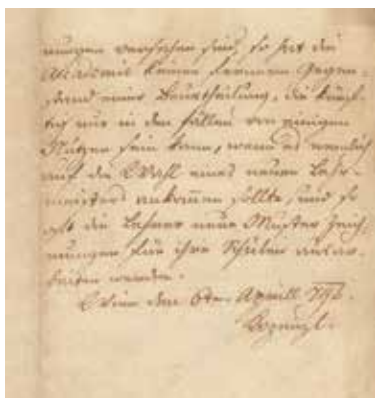 nungen versehen sind, so hat die
Academie keinen fernern Gegen-
stand einer Beurtheilung, die künf-
tig nur in den Fällen von einigen
Nutzen sein kann, wenn es nemlich
auf die Wahl eines neuen Lehr-
meisters ankom̅en sollte, und so
oft die Lehrer neue Muster Zeich-
nungen für ihre Schüler ausar-
beiten werden.
Wien den 6ten Aprill 796.